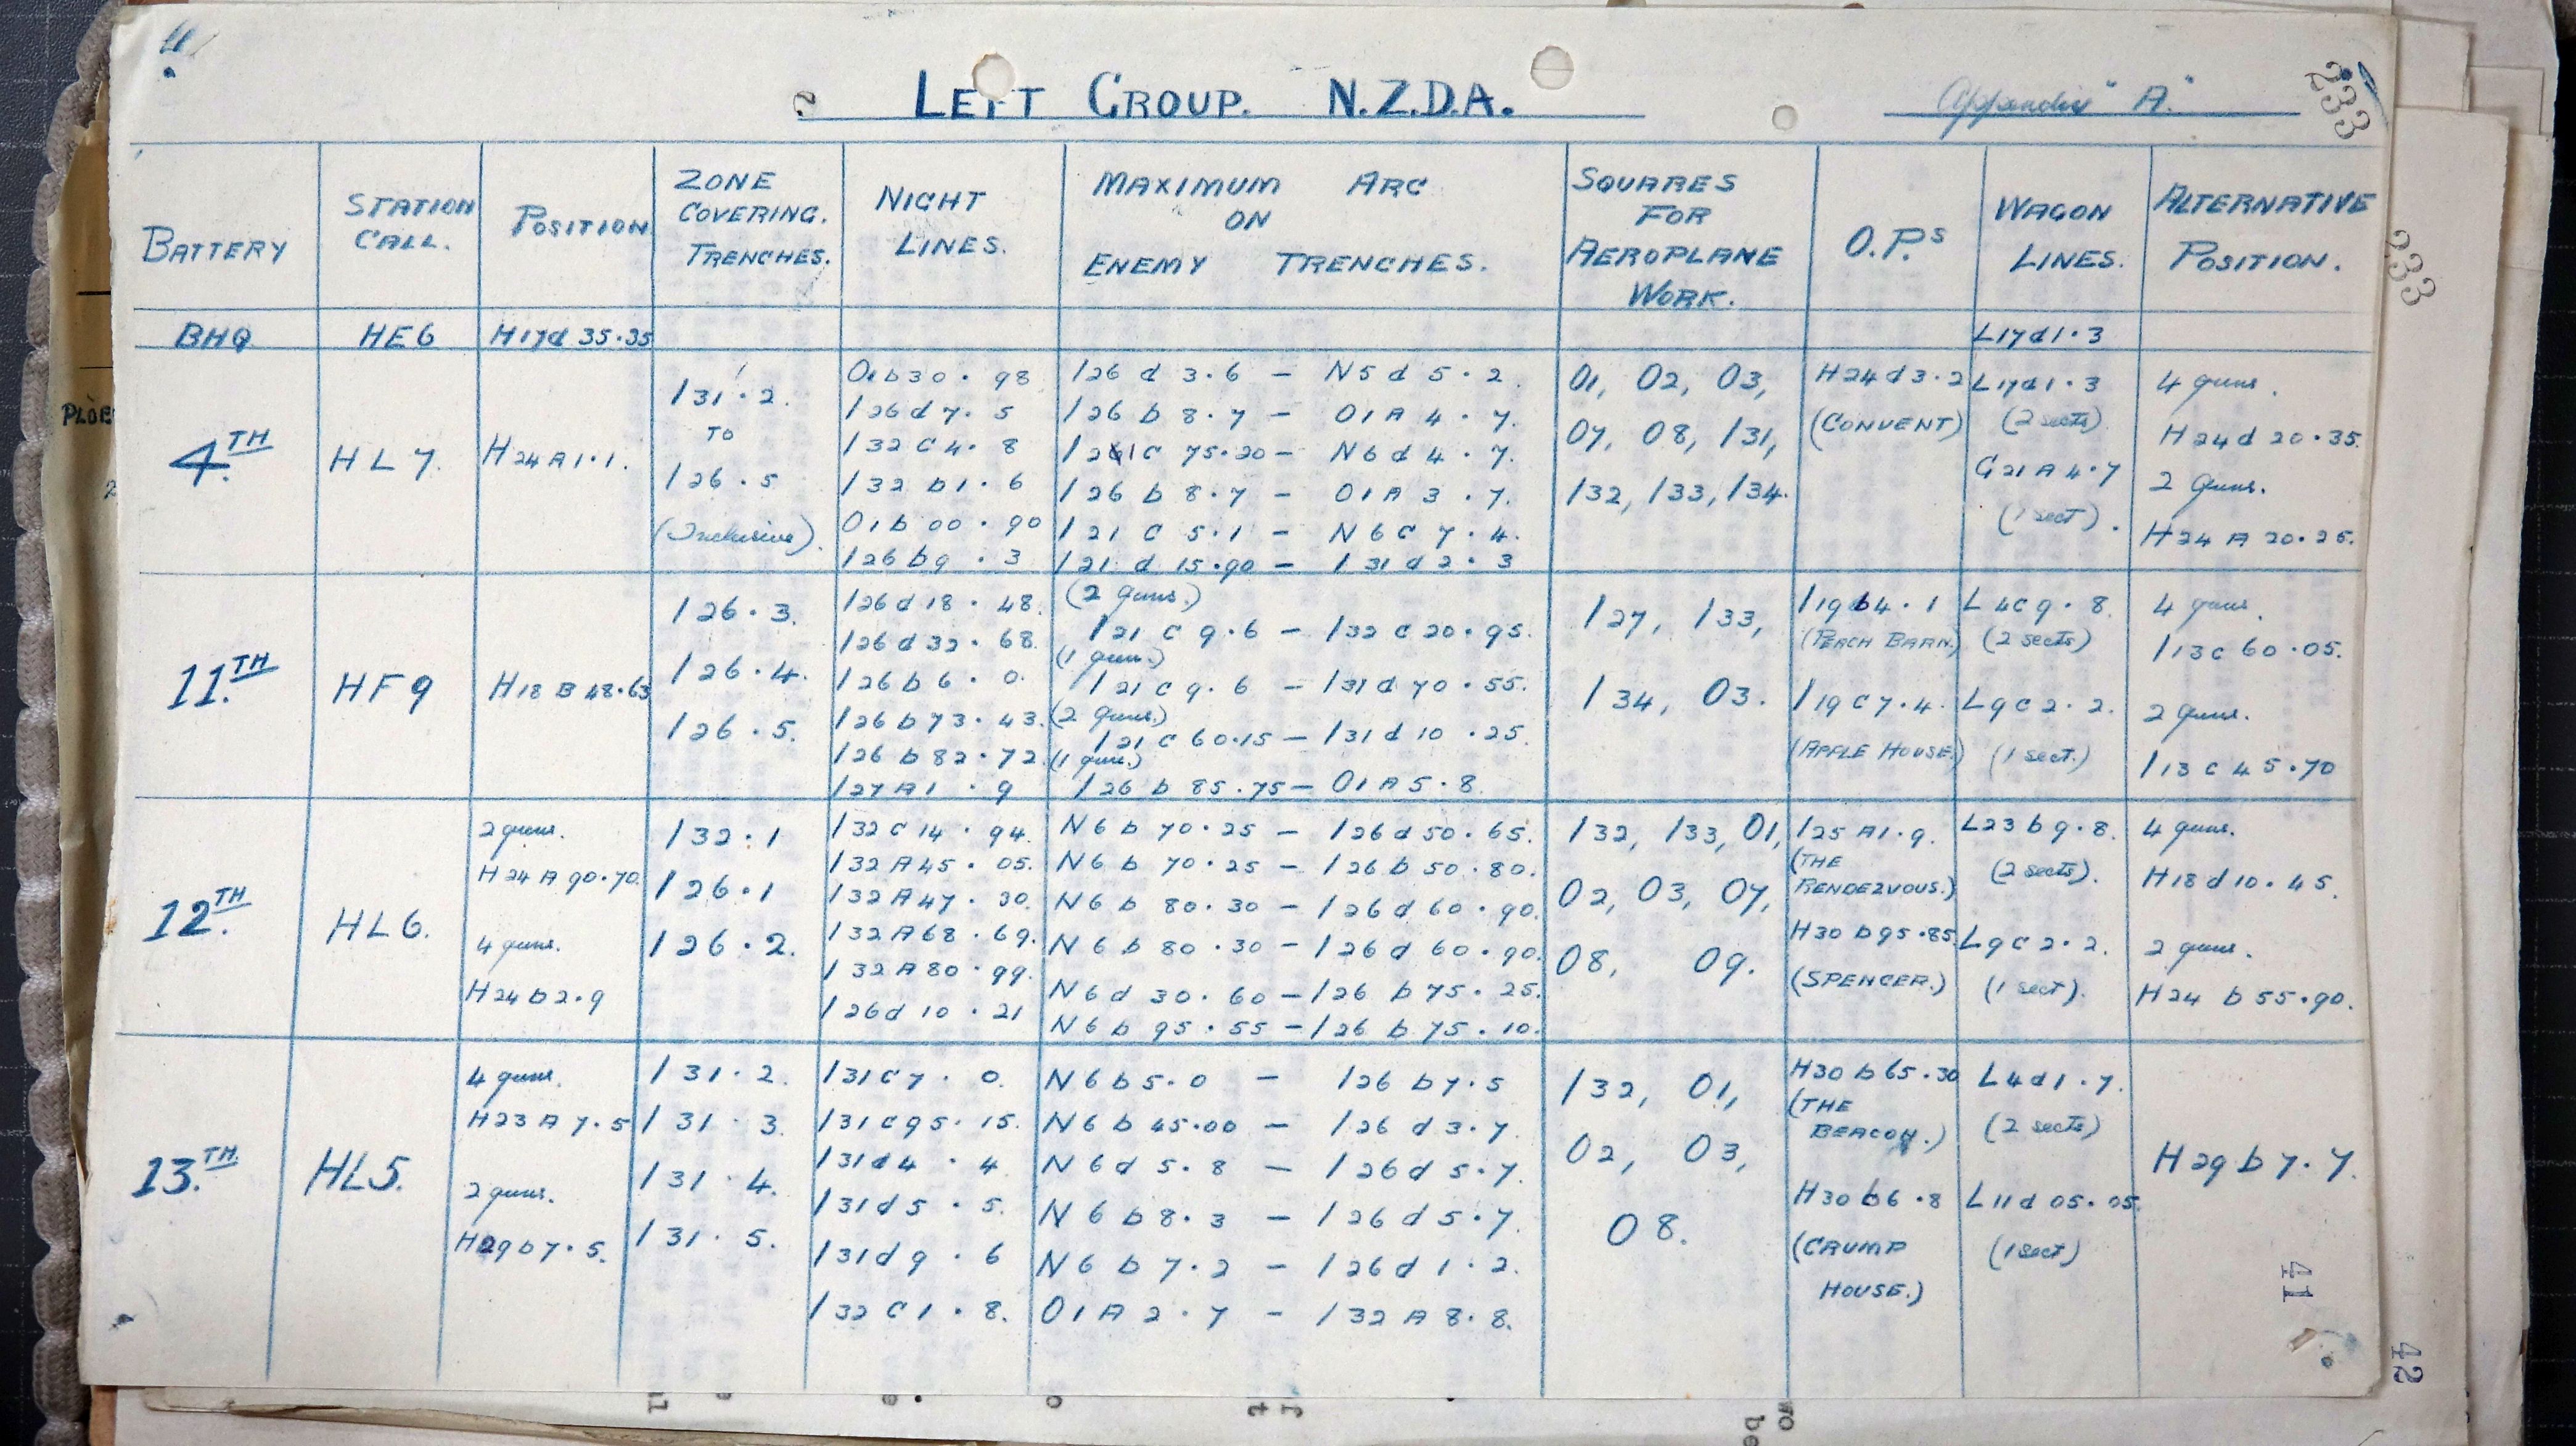 LEFT GROUP. N.Z.D.A.
Appendix "A"
233
BATTERY
STATION CALL.
POSITION
ZONE COVERING. TRENCHES.
NIGHT LINES.
MAXIMUM ARC ON ENEMY TRENCHES.
SQUARES FOR AEROPLANE WORK.
O.P.s
WAGON LINES.
ALTERNATIVE POSITION.
BHQ
HE6
H17d 35.35
L17d1.3
4TH.
HL7.
H24A1.1.
I31.2.
TO
I26.5
(Inclusive).
O1b30.98
I26d7.5
I32C4.8
I32b1.6
O1b00.90
I26b9.3
I26d3.6 - N5d5.2.
I26b8.7 - O1A4.7.
C75.20 - N6d4.7.
I26b8.7 - O1A3.7.
I21C5.1 - N6C7.4.
I21d15.90 - I31d2.3
O1, O2, O3,
O7, O8, I31,
I32, I33, I34.
H24d3.2
(CONVENT)
L17d1.3
(2 sects)
G21A4.7
(1 sect).
4 guns.
H24d20.35.
2 Guns.
H24A20.25.
11TH.
HF9
H18B48.63
I26.3.
I26.4.
I26.5.
I26d18.48.
I26d32.68.
I26b6.0.
I26b73.43.
I26b82.72.
I27A1.9
(2 guns.)
I21C9.6 - I32C20.95.
(1 gun.)
I21C9.6 - I31d70.55.
(2 guns.)
I21C60.15 - I31d10.25.
(1 gun.)
I26b85.75 - O1A5.8.
I27, I33,
I34, O3.
I19b4.1
(PEACH BARN.)
I19C7.4.
(APPLE HOUSE.)
L4C9.8.
(2 sects)
L9C2.2.
(1 sect.)
4 guns.
I13C60.05.
2 guns.
I13C45.70
12TH.
HL6.
2 guns.
H24A90.70.
4 guns.
H24b2.9
I32.1
I26.1
I26.2.
I32C14.94.
I32A45.05.
I32A47.30.
I32A68.69.
I32A80.99.
I26d10.21
N6b70.25 - I26d50.65.
N6b70.25 - I26b50.80.
N6b80.30 - I26d60.90.
N6b80.30 - I26d60.90.
N6d30.60 - I26b75.25.
N6b95.55 - I26b75.10.
I32, I33, O1,
O2, O3, O7,
O8, O9.
I25A1.9.
(THE
RENDEZVOUS.)
H30b95.85.
(SPENCER.)
L23b9.8.
(2 sects).
L9C2.2.
(1 sect).
4 guns.
H18d10.45.
2 guns.
H24b55.90.
13.TH.
HL5.
4 guns.
H23A7.5
2 guns.
H29b7.5.
I31.2.
I31.3.
I31.4.
I31.5.
I31C7.0.
I31C95.15.
I31d4.4
I31d5.5.
I31d9.6
I32C1.8.
N6b5.0 - I26b7.5
N6b45.00 - I26d3.7.
N6d5.8 - I26d5.7.
N6b8.3 - I26d5.7.
N6b7.2 - I26d1.2.
O1A2.7 - I32A8.8.
I32, O1,
O2, O3,
O8.
H30b65.30
(THE
BEACON.)
H30b6.8
(CRUMP
HOUSE.)
L4d1.7.
(2 sects)
L11d05.05.
(1 sect)
H29b7.7.
41
233
42